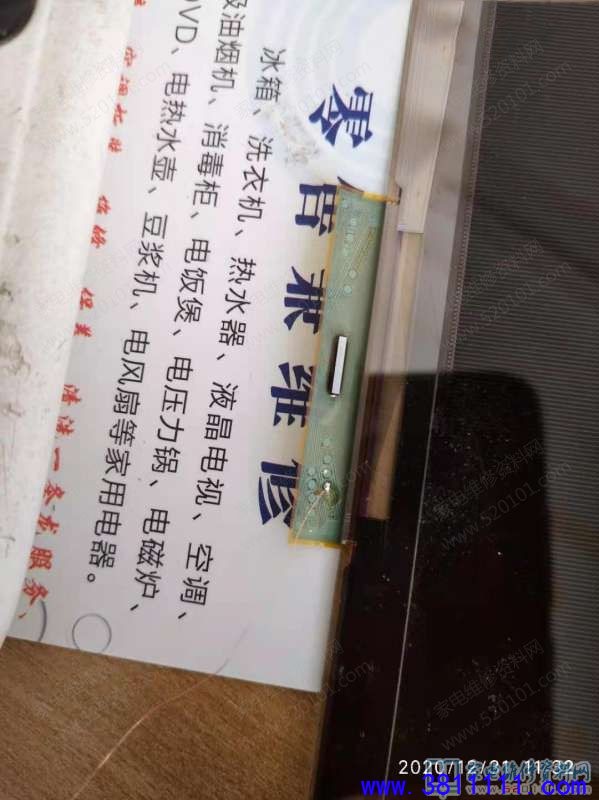 零售兼维修
冰箱、洗衣机、热水器、液晶电视、空调、
油烟机、消毒柜、电饭煲、电压力锅、电磁炉、
VD、电热水壶、豆浆机、电风扇等家用电器。
维修 保养 清洗一条龙服务、
家电维修资料网
www.520101.com
2020/12/31 11:32